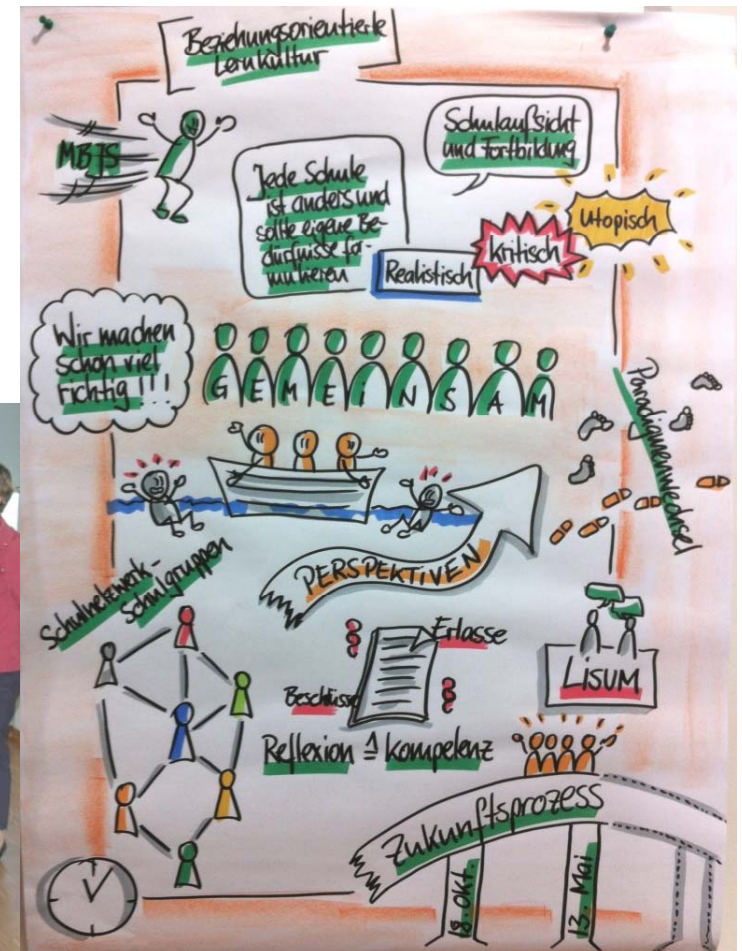 Beziehungsorientierte
Lernkultur
MBJS
Schulaufsicht
und Fortbildung
Jede Schule
ist anders und
sollte eigene Be-
dürfnisse for-
mulieren
Utopisch
Kritisch
Realistisch
Wir machen
schon viel
richtig!!!
GEMEINSAM
Paradigmenwechsel
PERSPEKTIVEN
Schulnetzwerk-
Schulgruppen
§
Erlasse
Beschlüsse
§
LISUM
Reflexion ≙ Kompetenz
Zukunftsprozess
18. Okt.
13. Mai